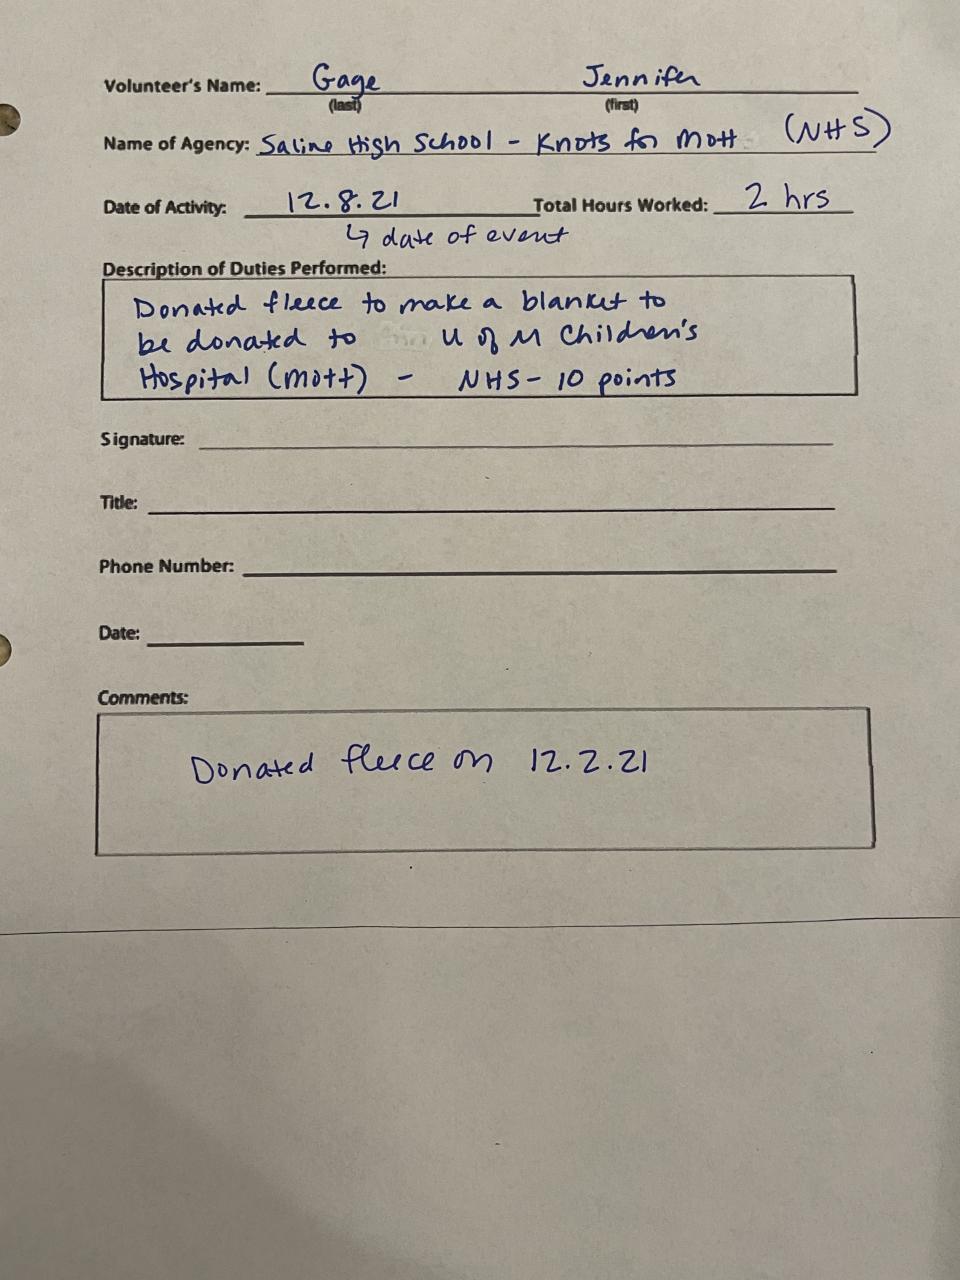 Volunteer's Name: Gage Jennifer
(last) (first)
Name of Agency: Saline High School - Knots for Mott (NHS)
Date of Activity: 12.8.21 Total Hours Worked: 2 hrs
↳ date of event
Description of Duties Performed:
Donated fleece to make a blanket to
be donated to U of M Children's
Hospital (Mott) - NHS - 10 points
Signature:
Title:
Phone Number:
Date:
Comments:
Donated fleece on 12.2.21